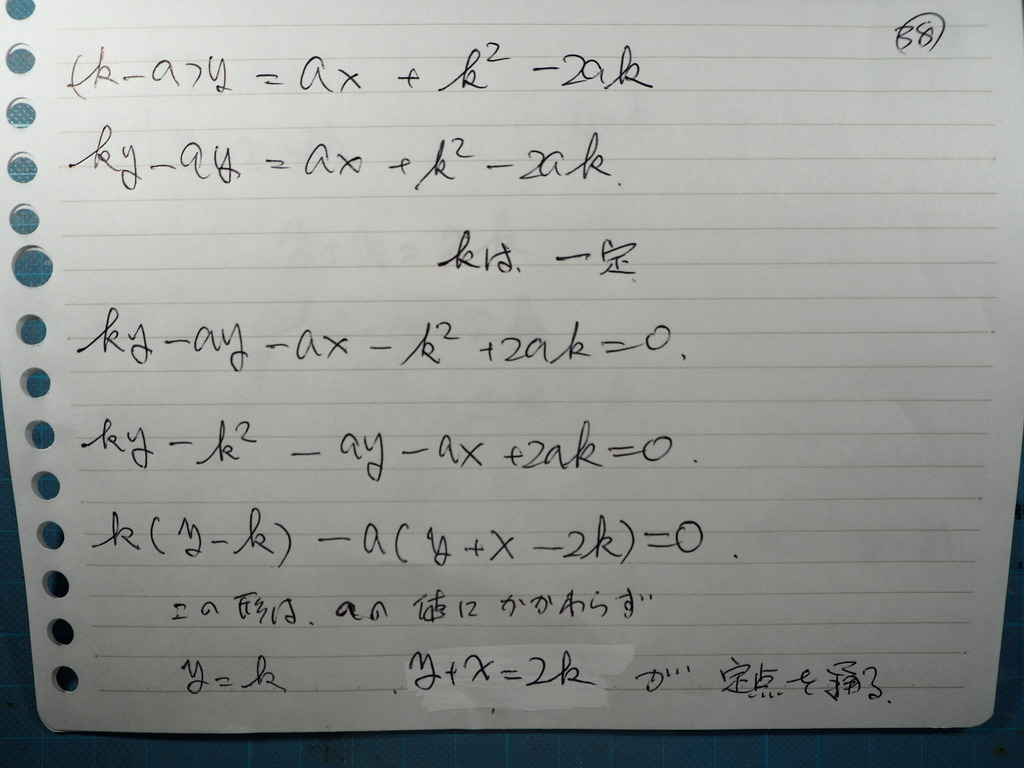 38
(k-a)y = ax + k² - 2ak
ky - ay = ax + k² - 2ak.
kは、一定
ky - ay - ax - k² + 2ak = 0.
ky - k² - ay - ax + 2ak = 0.
k(y-k) - a(y+x-2k) = 0.
この形は、aの値にかかわらず
y=k . y+x=2k が 定点を通る.